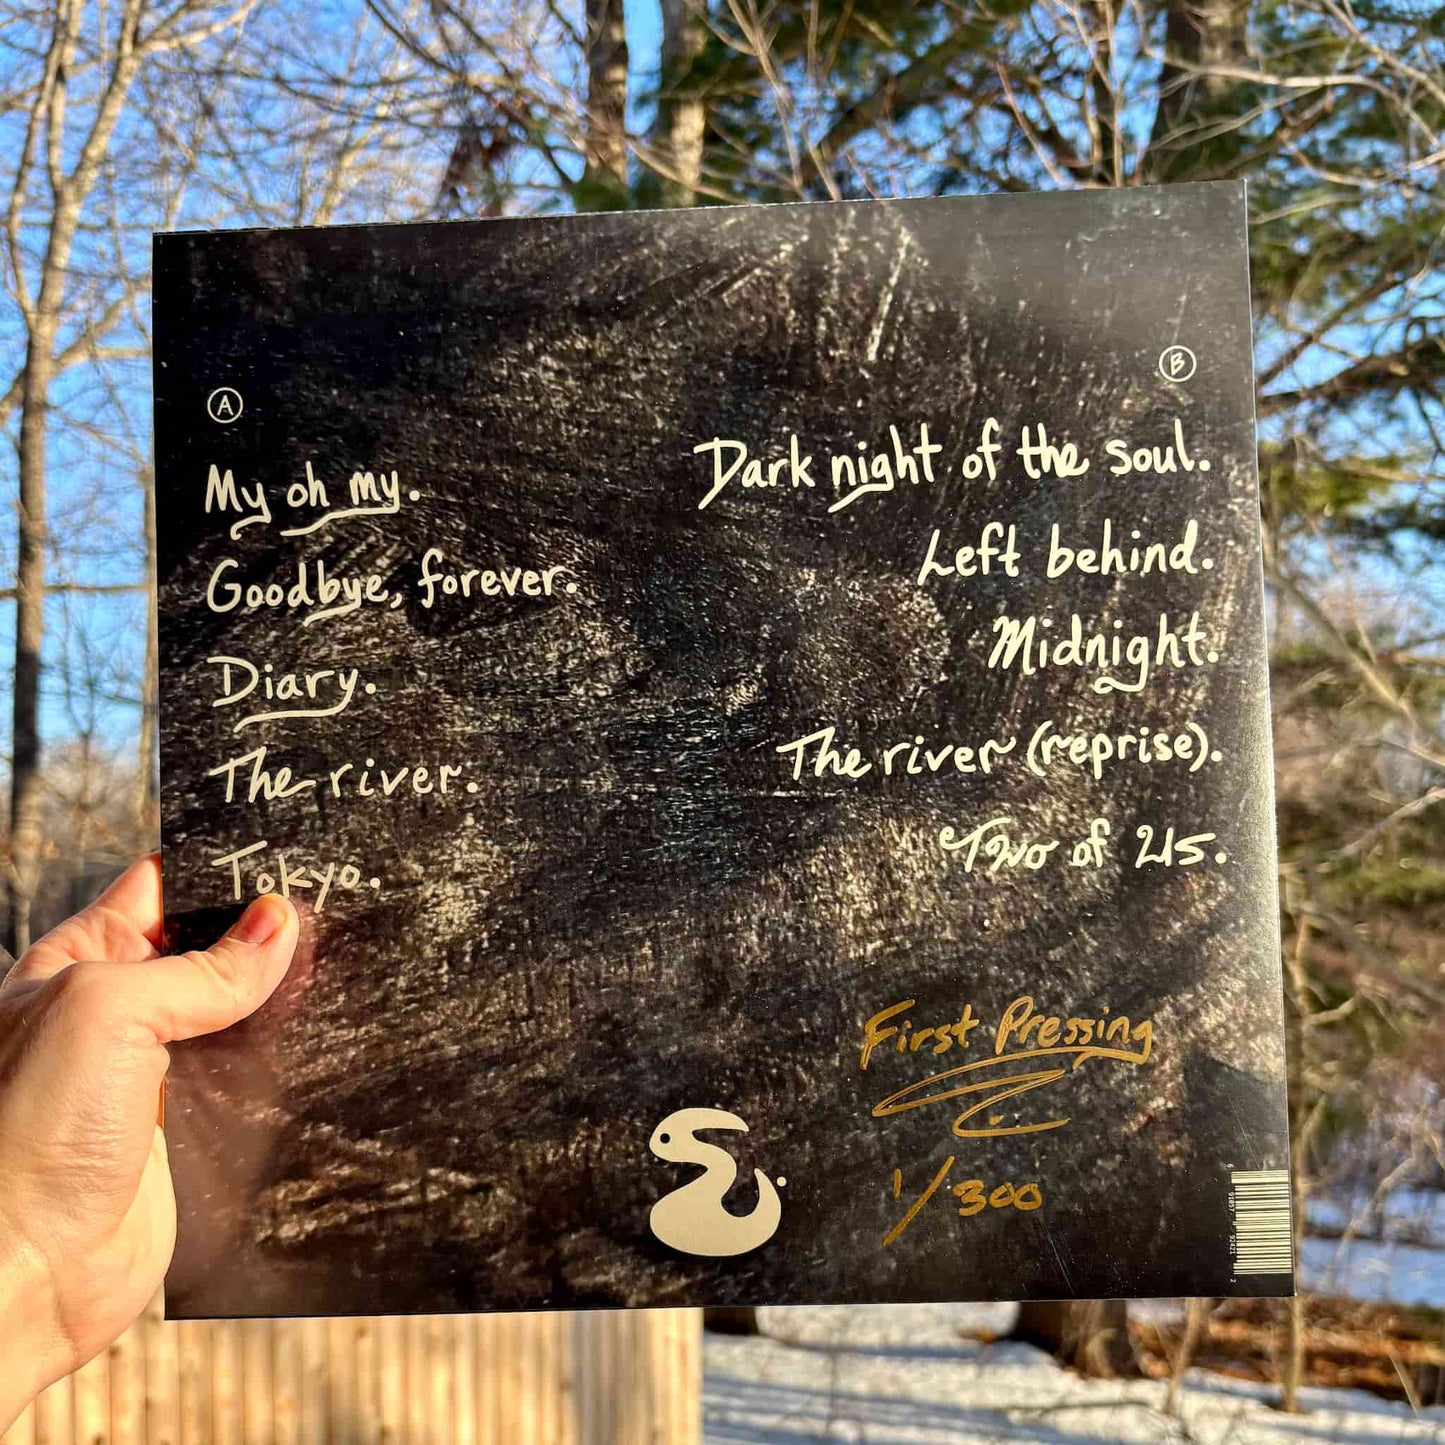 A
My oh my.
Goodbye, forever.
Diary.
The river.
Tokyo.
B
Dark night of the soul.
Left behind.
Midnight.
The river (reprise).
Two of us.
First Pressing
1/300